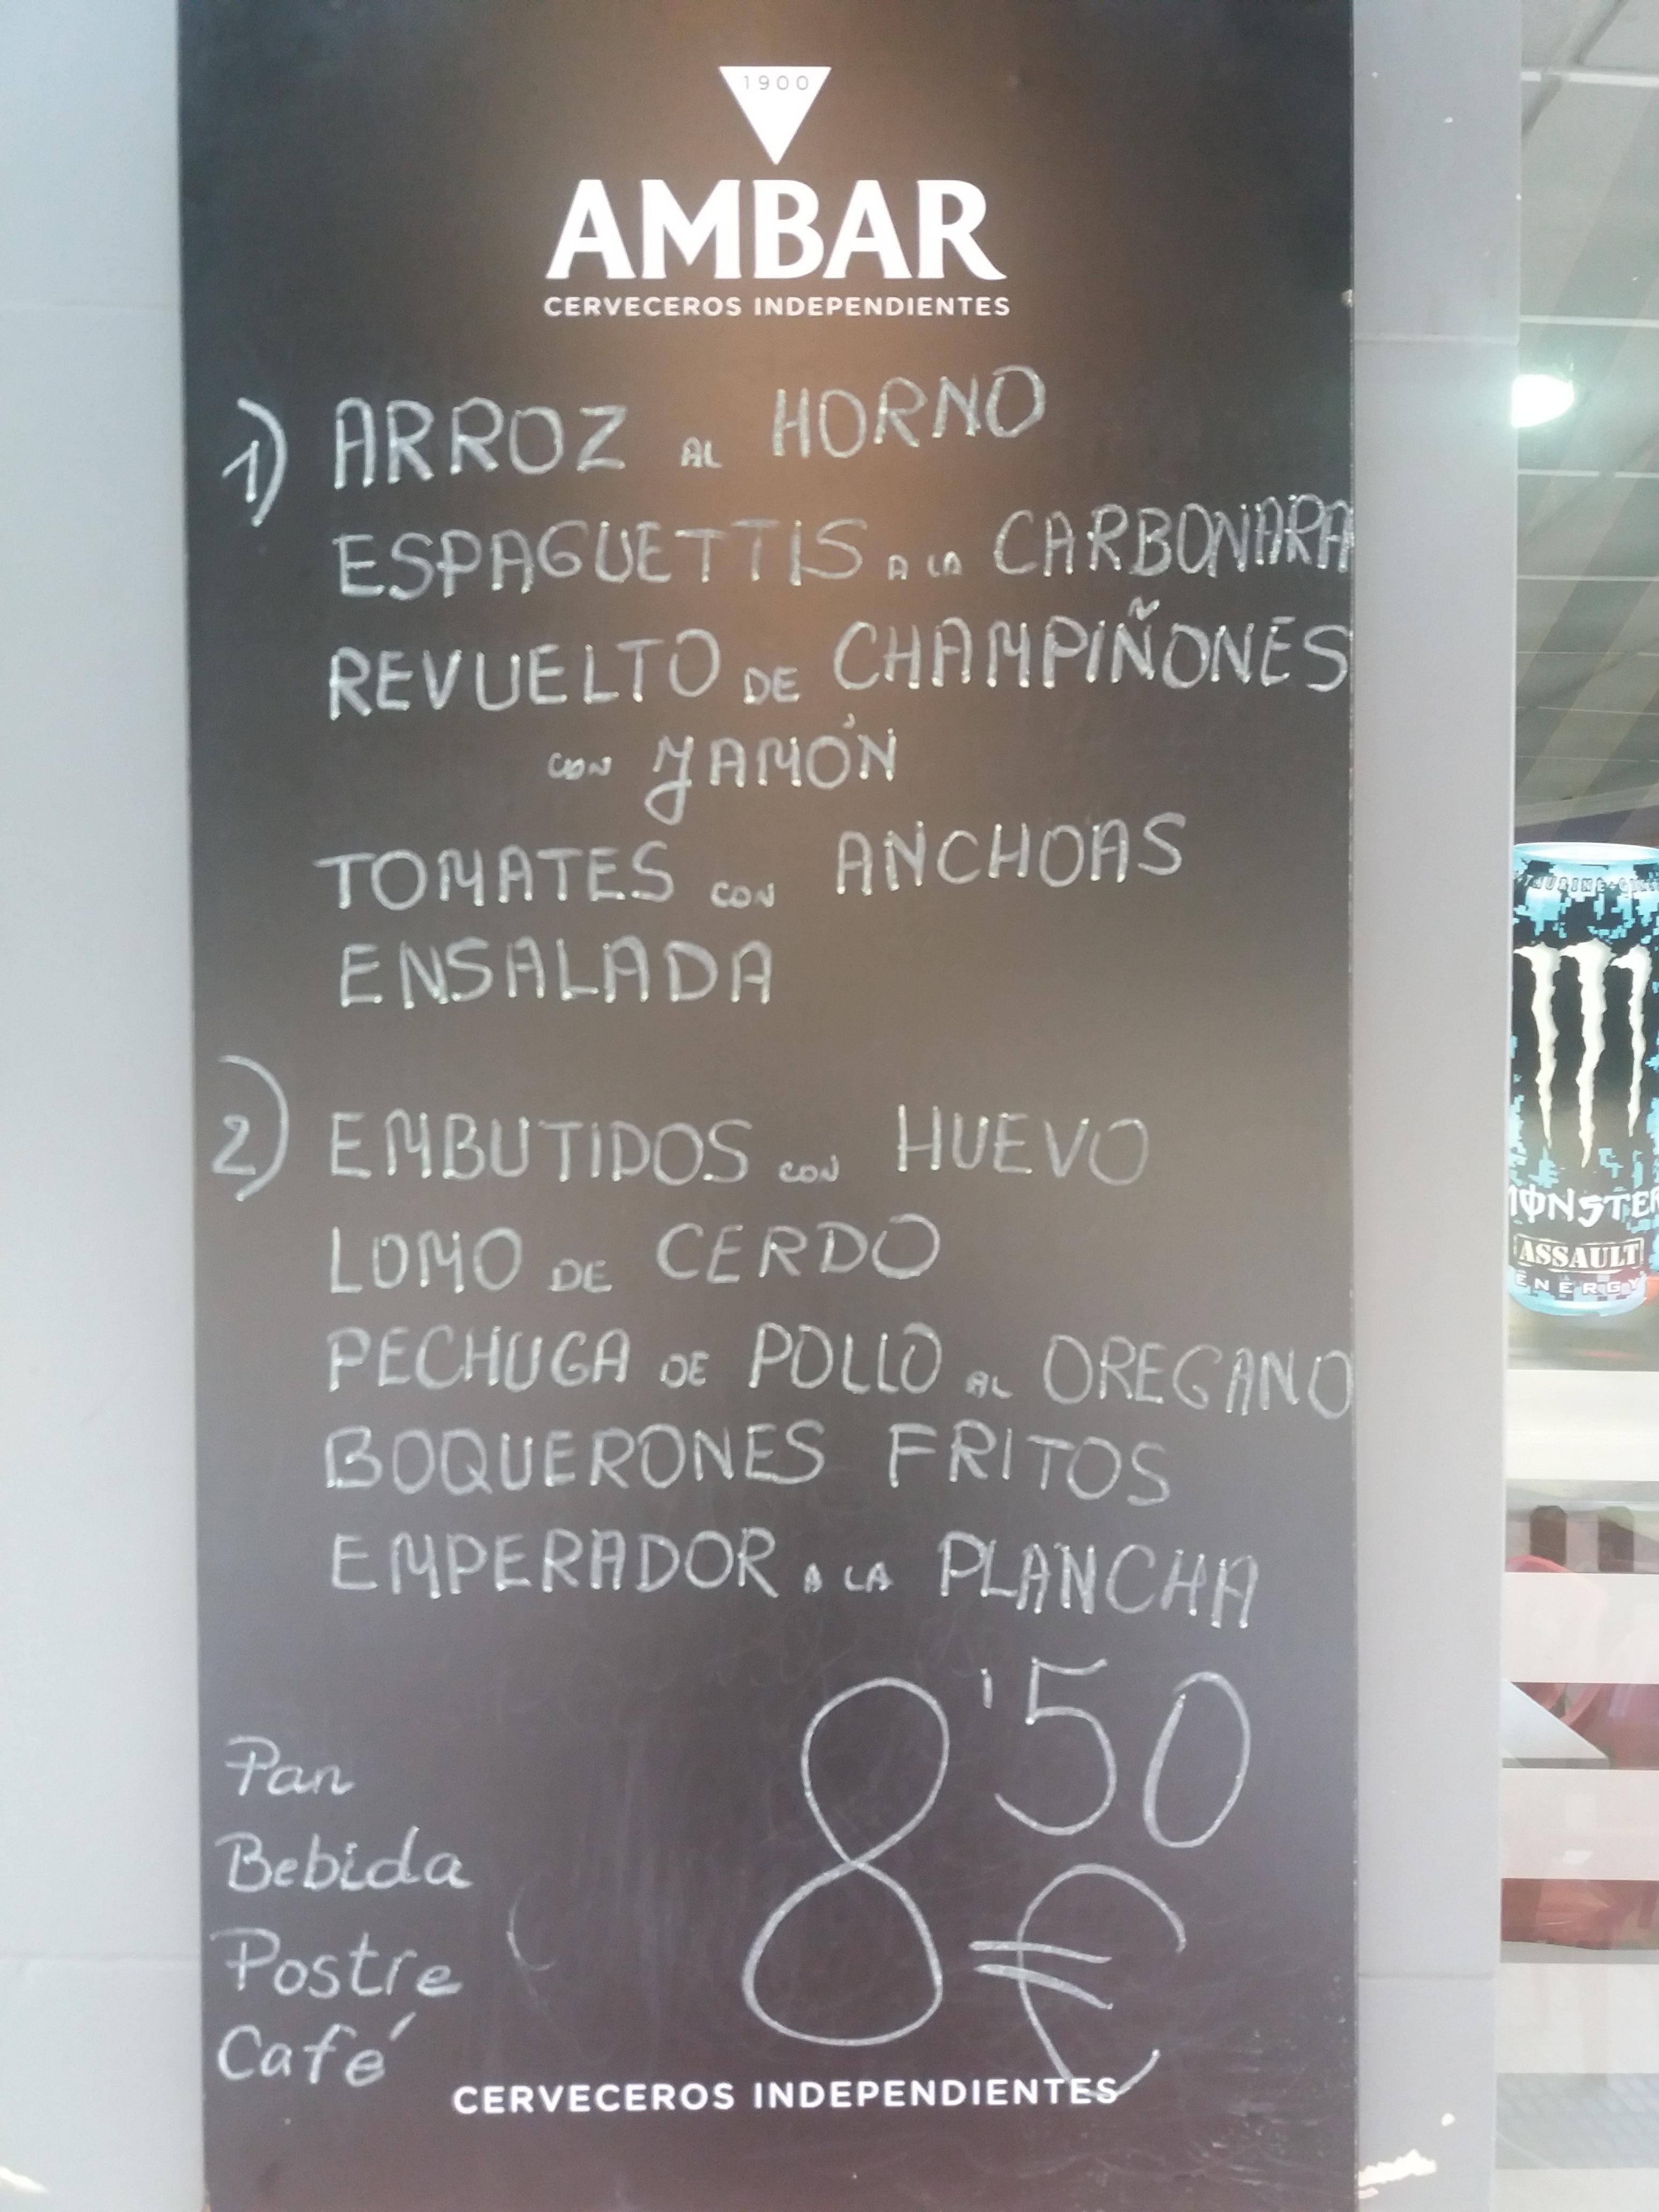 1900
AMBAR
CERVECEROS INDEPENDIENTES
1) ARROZ AL HORNO
ESPAGUETTIS A LA CARBONARA
REVUELTO DE CHAMPIÑONES
CON JAMÓN
TOMATES CON ANCHOAS
ENSALADA
2) EMBUTIDOS CON HUEVO
LOMO DE CERDO
PECHUGA DE POLLO AL OREGANO
BOQUERONES FRITOS
EMPERADOR A LA PLANCHA
8'50
€
Pan
Bebida
Postre
Café
CERVECEROS INDEPENDIENTES
MONSTER
ASSAULT
ENERGY